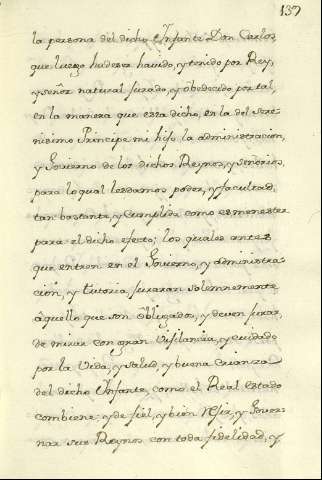 137
la persona del dicho Infante Don Carlos,
que luego hadeser havido, y tenido por Rey,
y señor natural jurado, y obedecido por tal,
en la manera que esta dicho, en la del sere-
nisimo Principe mi hijo la administracion,
y Govierno de los dichos Reynos, y señorios,
para lo qual lesdamos poder, y facultad
tan bastante, y cumplida como esmenester
para el dicho efecto; los quales antes
que entren en el Govierno, y administra-
cion, y tutoria, juraran solemnemente
aquello que son obligados, y deven jurar,
de mirar con gran vigilancia, y cuidado
por la vida, y salud, y buena crianza
del dicho Infante, como el Real estado
combiene y de fiel, y bien regir, y Gover-
nar sus Reynos con toda fidelidad, y